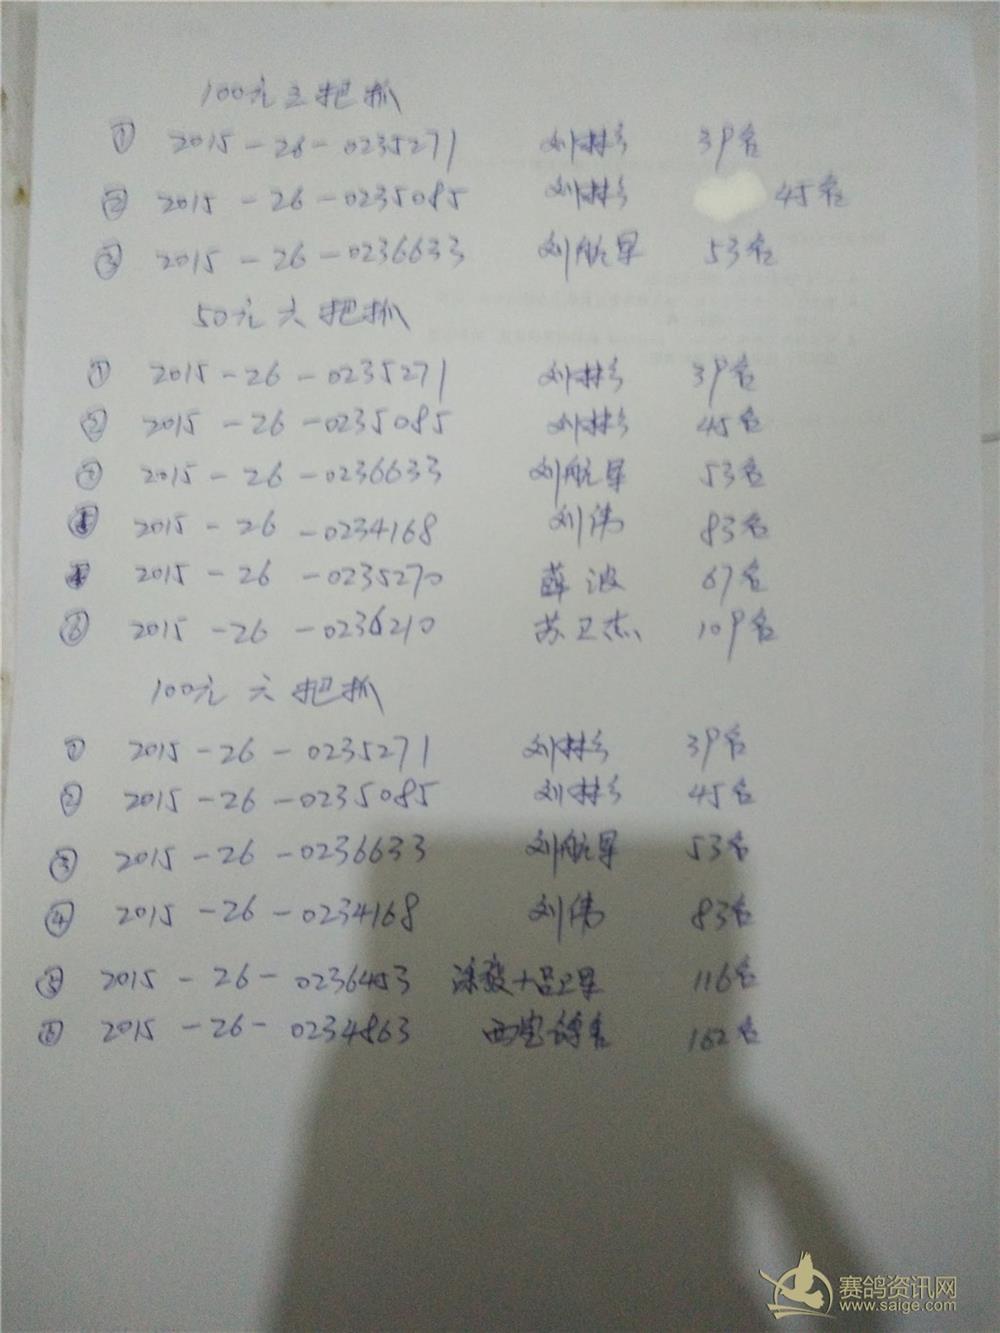 100元三把抓
① 2015-26-0235271 刘林 39名
② 2015-26-0235085 刘林 45名
③ 2015-26-0236633 刘航星 53名
50元六把抓
① 2015-26-0235271 刘林 39名
② 2015-26-0235085 刘林 45名
③ 2015-26-0236633 刘航星 53名
2015-26-0234168 刘伟 83名
2015-26-0235270 薛波 67名
⑥ 2015-26-0236210 苏卫杰 109名
100元六把抓
① 2015-26-0235271 刘林 39名
② 2015-26-0235085 刘林 45名
③ 2015-26-0236633 刘航星 53名
④ 2015-26-0234168 刘伟 83名
⑤ 2015-26-0236453 涂毅+吕卫星 116名
⑥ 2015-26-0234863 162名
赛鸽资讯网
www.saige.com